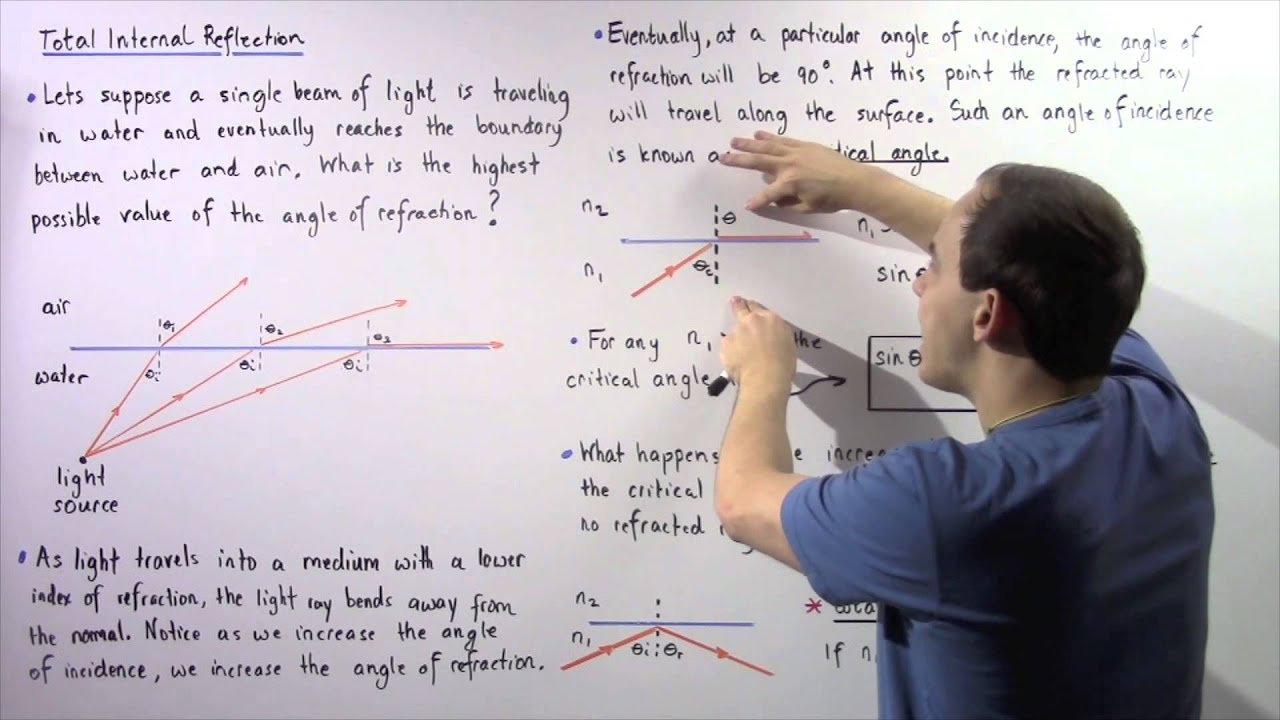 Total Internal Reflection
• Lets suppose a single beam of light is traveling
in water and eventually reaches the boundary
between water and air. What is the highest
possible value of the angle of refraction?
air
water
θ1
θ2
θ3
θi
θi
θi
light
source
• As light travels into a medium with a lower
index of refraction, the light ray bends away from
the normal. Notice as we increase the angle
of incidence, we increase the angle of refraction.
• Eventually, at a particular angle of incidence, the angle of
refraction will be 90°. At this point the refracted ray
will travel along the surface. Such an angle of incidence
is known angle.
n2
θ
n1
θc
n1
sin θ
• For any n1 the
critical angle
sin θ
• What happens
the critical
no refracted
n2
n1
θi θr
*
If n